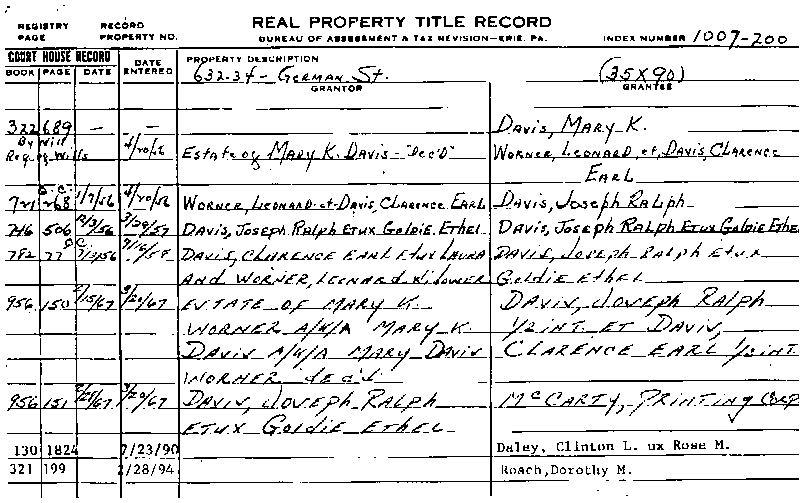 REGISTRY PAGE RECORD PROPERTY NO. REAL PROPERTY TITLE RECORD
BUREAU OF ASSESSMENT & TAX REVISION—ERIE, PA. INDEX NUMBER 1007-200
COURT HOUSE RECORD DATE ENTERED PROPERTY DESCRIPTION
BOOK PAGE DATE 632-34 - German St. (35x90)
GRANTOR GRANTEE
322 689 — — Davis, Mary K.
By Will Reg. of Wills 4/20/56 Estate of Mary K. Davis - "Dec'd" Worner, Leonard et, Davis, Clarence
Earl
721 268 1/7/56 4/20/56 Worner, Leonard et Davis, Clarence Earl Davis, Joseph Ralph
746 506 12/3/56 3/20/57 Davis, Joseph Ralph Etux Goldie Ethel Davis, Joseph Ralph Etux Goldie Ethel
782 77 7/13/56 9/16/58 Davis, Clarence Earl Etux Laura Davis, Joseph Ralph Etux
And Worner, Leonard Widower Goldie Ethel
956 150 2/15/67 3/20/67 Estate of Mary K. Davis, Joseph Ralph
Worner A/K/A Mary K. 1/2 int et Davis,
Davis A/K/A Mary Davis Clarence Earl 1/2 int
Worner dec'd
956 151 2/28/67 3/20/67 Davis, Joseph Ralph McCarty, Printing Corp
etux Goldie Ethel
130 1824 7/23/90 Daley, Clinton L. ux Rose M.
321 199 /28/94 Roach,Dorothy M.